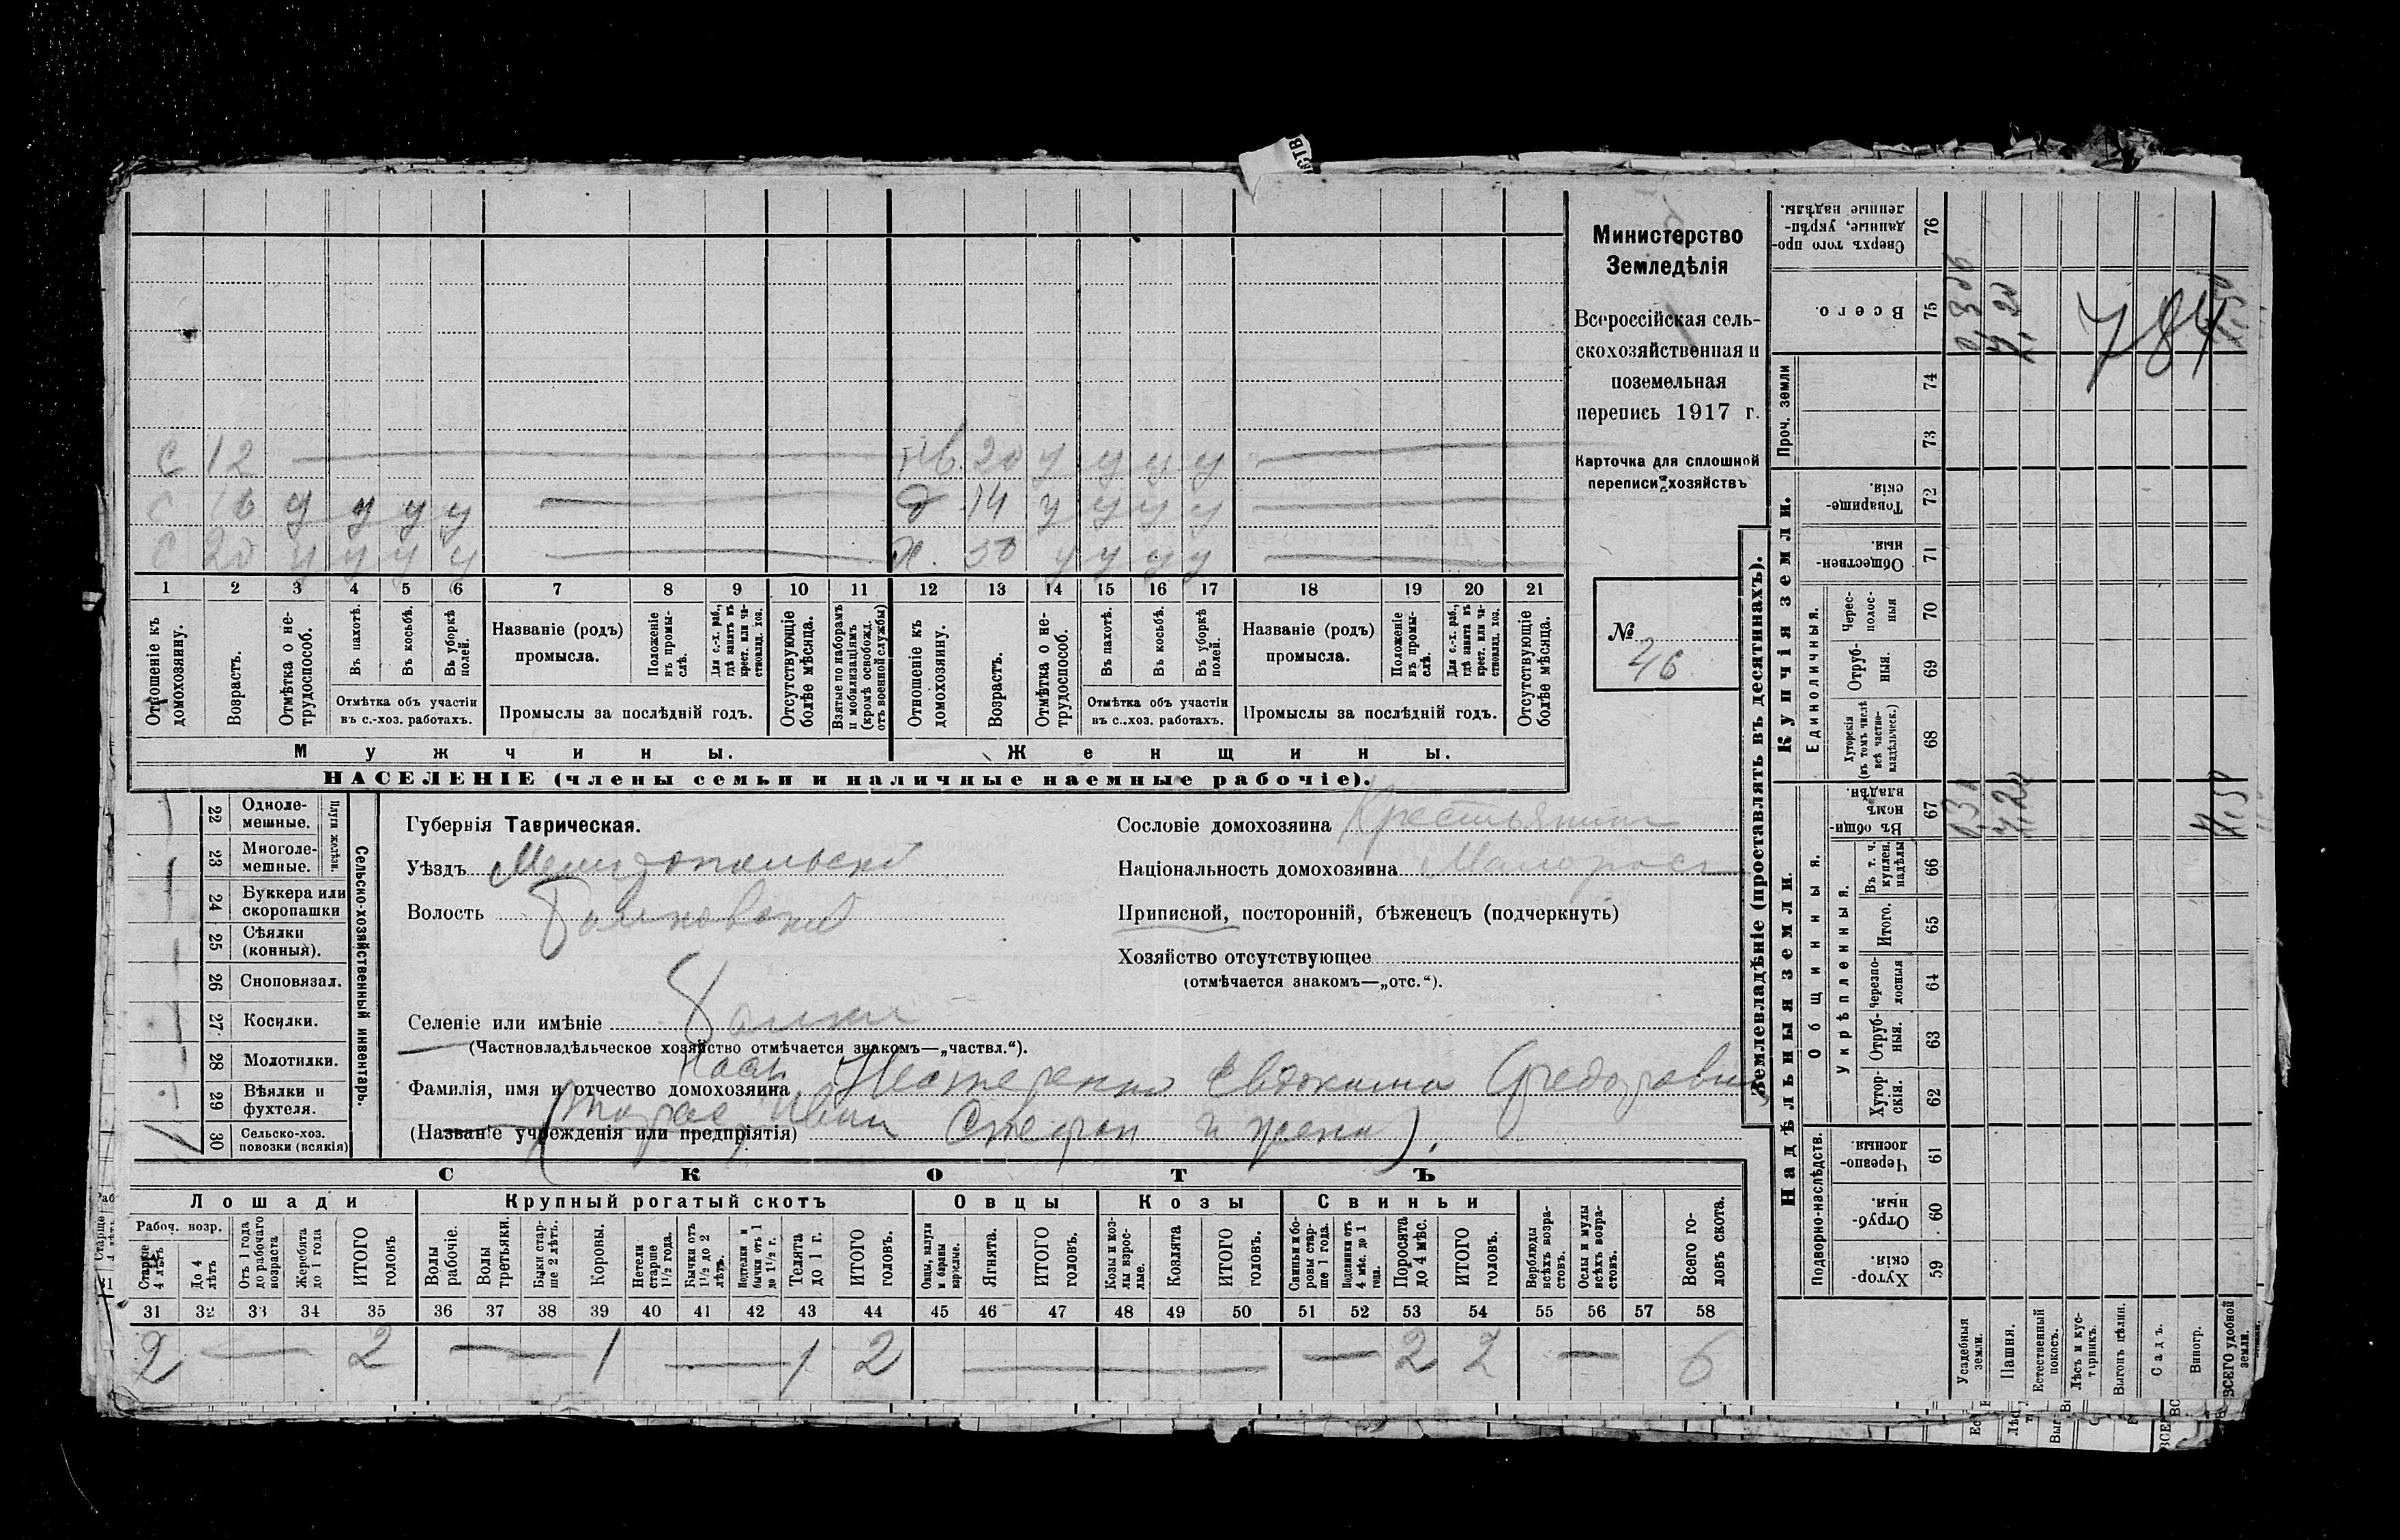 с 12 пв. 20 у у у у
с 16 у у у у д 14 у у у у
с 20 у у у у х. 50 у у у у
1 2 3 4 5 6 7 8 9 10 11 12 13 14 15 16 17 18 19 20 21
Отношеніе къ домохозяину.
Возрастъ.
Отмѣтка о не-трудоспособ.
Въ пахотѣ.
Въ косьбѣ.
Въ уборкѣ полей.
Отмѣтка объ участіи
въ с.-хоз. работахъ.
Названіе (родъ)
промысла.
Положеніе въ промы-слѣ.
Для с.-х. раб., гдѣ занятъ въ крест. или ча-стновлад. хоз.
Промыслы за послѣдній годъ.
Отсутствующіе болѣе мѣсяца.
Взятые по наборамъ и мобилизаціямъ (кромѣ освобожд. отъ военной службы)
Отношеніе къ домохозяину.
Возрастъ.
Отмѣтка о не-трудоспособ.
Въ пахотѣ.
Въ косьбѣ.
Въ уборкѣ полей.
Отмѣтка объ участіи
въ с.-хоз. работахъ.
Названіе (родъ)
промысла.
Положеніе въ промы-слѣ.
Для с.-х. раб., гдѣ занята въ крест. или ча-стновлад. хоз.
Промыслы за послѣдній годъ.
Отсутствующіе болѣе мѣсяца.
Мужчины. Женщины.
НАСЕЛЕНІЕ (члены семьи и наличные наемные рабочіе).
Министерство
Земледѣлія
Всероссійская сель-
скохозяйственная и
поземельная
перепись 1917 г.
Карточка для сплошной
переписи хозяйствъ
№
26
22 Одноле-мешные.
23 Многоле-мешные.
Плуги желѣзн.
24 Буккера или скоропашки
25 Сѣялки (конныя).
26 Сноповязал.
27 Косилки.
28 Молотилки.
29 Вѣялки и фухтеля.
30 Сельско-хоз. повозки (всякія)
1
Сельско-хозяйственный инвентарь.
Губернія Таврическая.
Уѣздъ Мелитопольскій
Волость Балковский
Селеніе или имѣніе Балки
(Частновладѣльческое хозяйство отмѣчается знакомъ—„частвл.“).
Фамилія, имя и отчество домохозяина Нестеренко Евдокима Федоровы
(Названіе учрежденія или предпріятія) Стефан
Сословіе домохозяина Крестьянин
Національность домохозяина Малорос
Приписной, посторонній, бѣженецъ (подчеркнуть)
Хозяйство отсутствующее
(отмѣчается знакомъ—„отс.“).
СКОТЪ
Лошади Крупный рогатый скотъ Овцы Козы Свиньи
Рабоч. возр.
Старше 4 лѣтъ
До 4 лѣтъ
Отъ 1 года до рабочаго возраста
Жеребята до 1 года
ИТОГО головъ
Волы рабочіе.
Волы третьяки.
Быки стар-ше 2 лѣтъ.
Коровы.
Нетели старше 1½ года.
Бычки отъ 1½ до 2 лѣтъ.
Подтелки и бычки отъ 1 до 1½ г.
Телята до 1 г.
ИТОГО головъ.
Овцы, валухи и бараны взрослые.
Ягнята.
ИТОГО головъ.
Козы и коз-лы взрос-лые.
Козлята
ИТОГО головъ.
Свиньи и бо-ровы стар-ше 1 года.
Подсвинки отъ 4 мѣс. до 1 года.
Поросята до 4 мѣс.
ИТОГО головъ.
Верблюды всѣхъ возра-стовъ.
Ослы и мулы всѣхъ возра-стовъ.
Всего го-ловъ скота.
31 32 33 34 35 36 37 38 39 40 41 42 43 44 45 46 47 48 49 50 51 52 53 54 55 56 57 58
2 2 1 1 2 2 2 6
Землевладѣніе (проставлять въ десятинахъ).
Надѣльныя земли. Купчія земли. Проч. земли
Подворно-наслѣдств. Общинныя. Единоличныя.
Укрѣпленныя.
Хутор-скія. 59
Отруб-ныя. 60
Черезпо-лосныя 61
Хутор-скія. 62
Отруб-ныя. 63
Черезпо-лосныя 64
Итого. 65
Въ т. ч. куплен. надѣлы 66
Въ общи-номъ владѣн. 67
Хуторскія (въ томъ числѣ всѣ частно-владѣльческ.) 68
Отруб-ныя. 69
Черес-полос-ныя 70
Обществен-ныя 71
Товарище-скія. 72
73
74
Всего. 75
Сверхъ того про-данные, укрѣп-ленные надѣлы. 76
Усадебныя земли.
Пашня.
Естественный покосъ.
Лѣсъ и кус-тарникъ.
Выгонъ цѣлин.
Садъ.
Виногр.
ВСЕГО удобной земли.
784